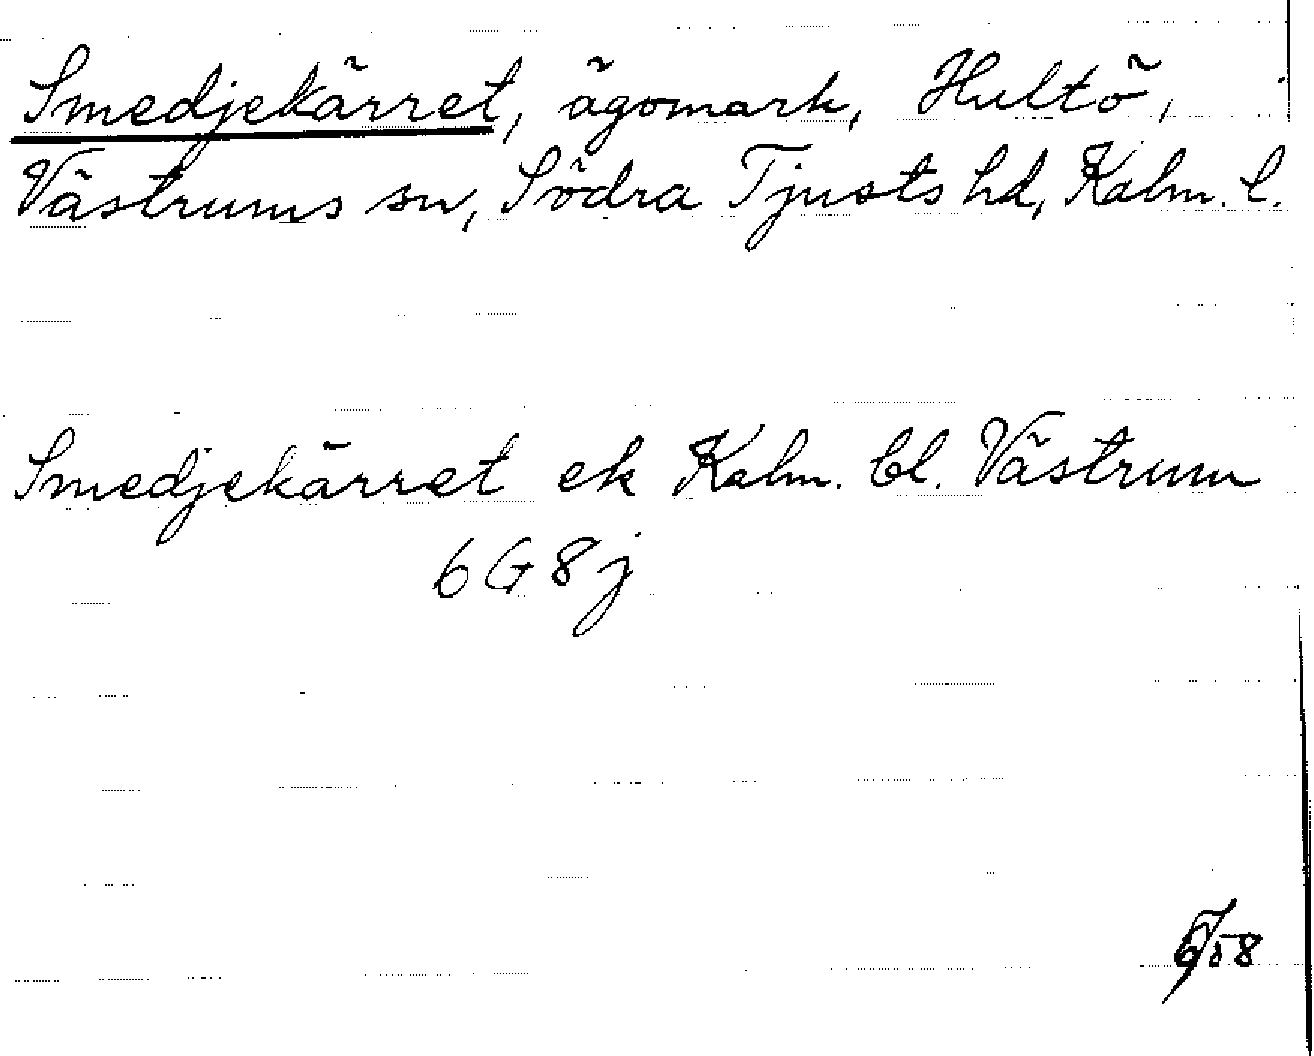 Smedjekärret, ägomark, Hultö,
Västrums sn, Södra Tjusts hd, Kalm. l.
Smedjekärret ek Kalm. bl. Västrum
6G8j